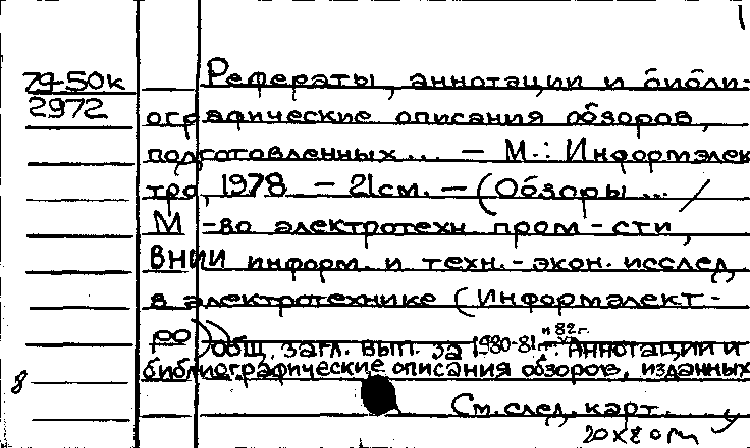 1
79-50к Рефераты, аннотации и библи-
2972 ографические описания обзоров,
подготовленных... – М.: Информэлек
тро, 1978 – 21см. – (Обзоры ... /
М-во электротехн. пром-сти,
ВНИИ информ. и техн.-экон. исслед.
в электротехнике (Информэлект-
ро)) общ. загл. вып. за 1980-81г. и 82г. : Аннотации и
8 библиографические описания обзоров, изданных
См. след. карт.